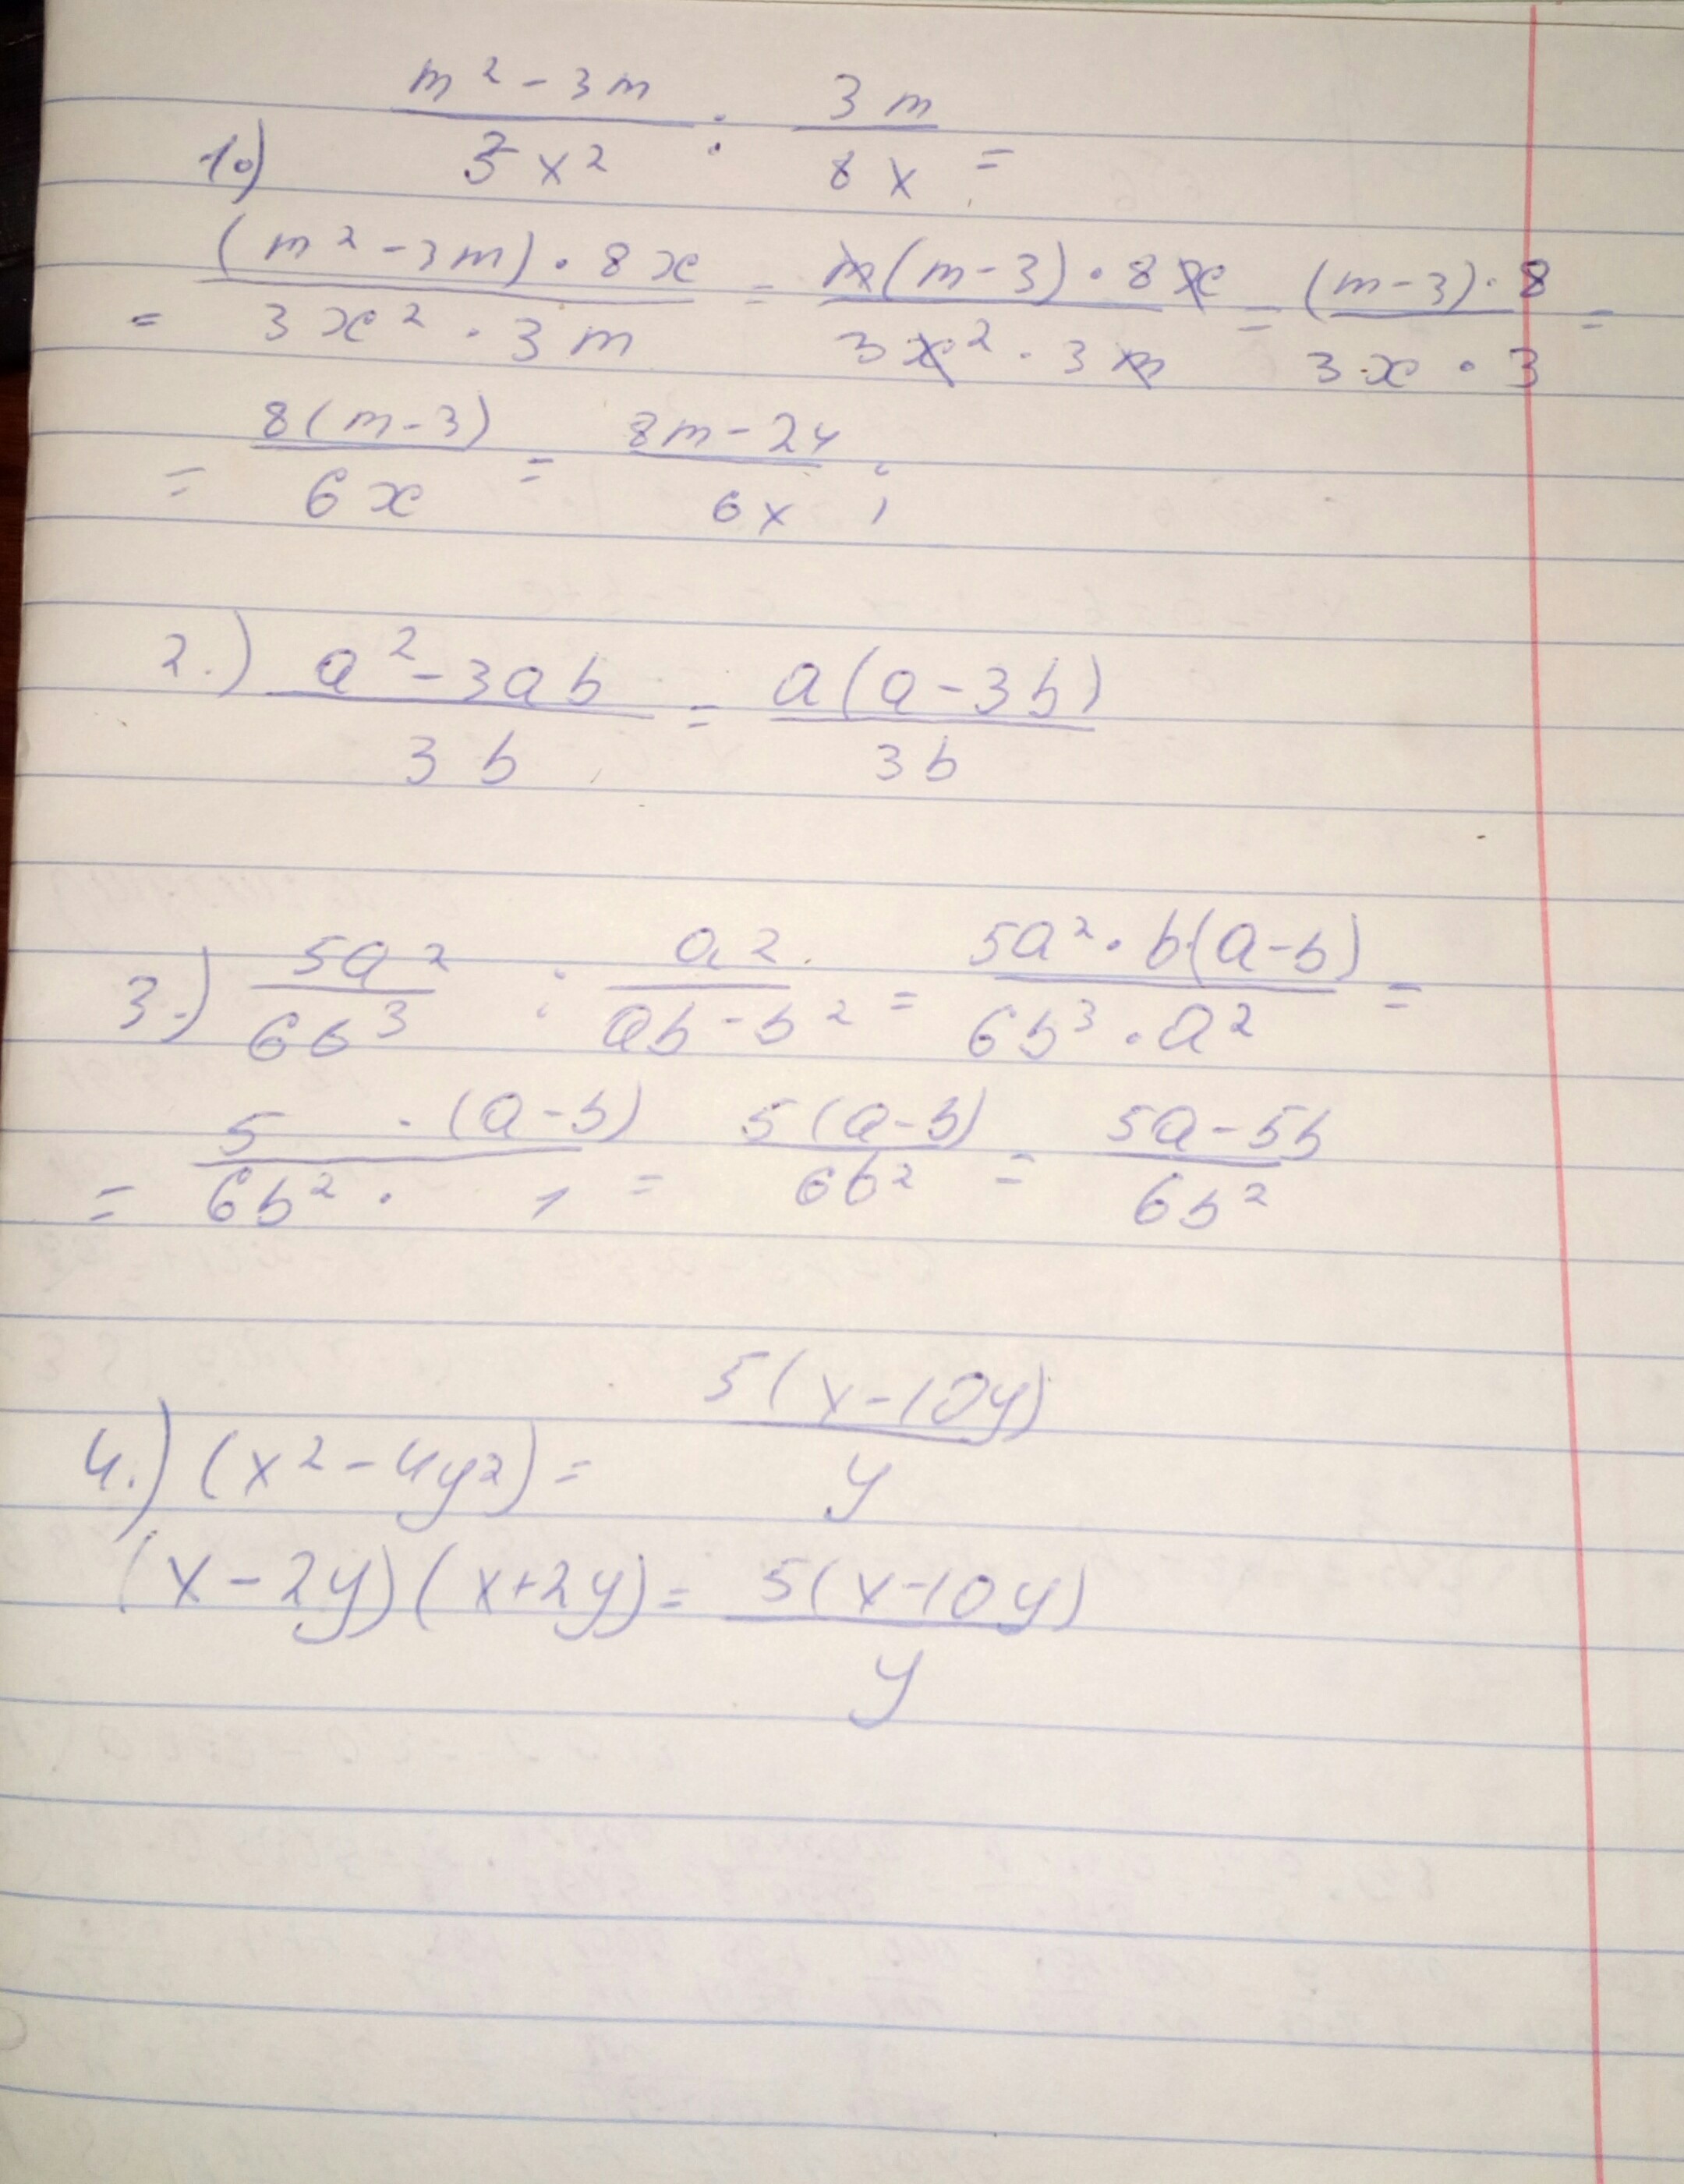 1.) (m² - 3m)/(3x²) : (3m)/(8x) =
= ((m² - 3m) · 8x)/(3x² · 3m) = (m(m - 3) · 8x)/(3x² · 3m) = ((m - 3) · 8)/(3x · 3) =
= (8(m - 3))/(6x) = (8m - 24)/(6x) ;
2.) (a² - 3ab)/(3b) = (a(a - 3b))/(3b)
3.) (5a²)/(6b³) : (a²)/(ab - b²) = (5a² · b(a - b))/(6b³ · a²) =
= (5 · (a - b))/(6b² · 1) = (5(a - b))/(6b²) = (5a - 5b)/(6b²)
4.) (x² - 4y²) = (5(x - 10y))/(y)
(x - 2y)(x + 2y) = (5(x - 10y))/(y)